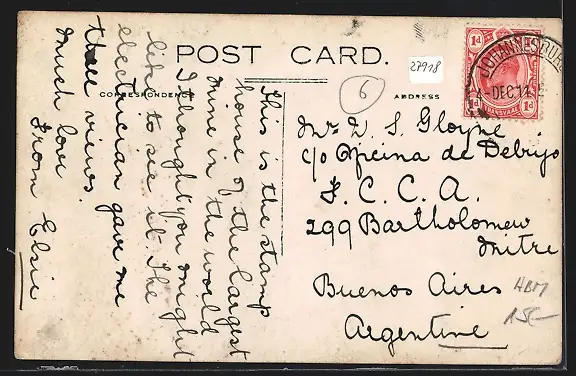 POST CARD.
27918
6
CORRESPONDENCE
ADDRESS
1d 1d
1d 1d
JOHANNESBURG
DEC 11
This is the stamp
house of the largest
mine in the world
I thought you might
like to see it. The
electrician gave me
these views.
Much love
From Elsie
Mrs D. S. Gloyne
c/o Oficina de Debrijo
F. C. C. A.
299 Bartholomew
Mitre
Buenos Aires
Argentine
HBM